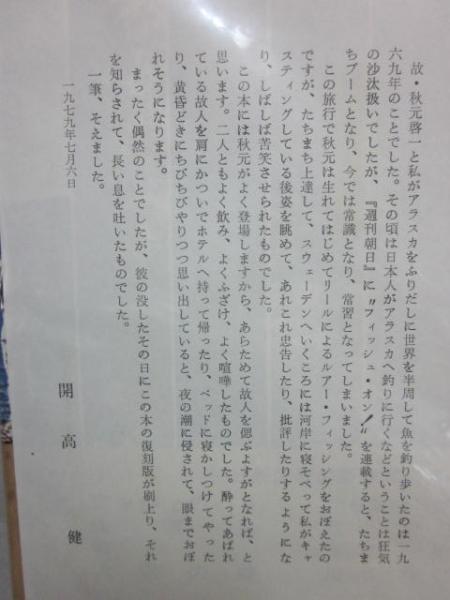 故・秋元啓一と私がアラスカをふりだしに世界を半周して魚を釣り歩いたのは一九
六九年のことでした。その頃は日本人がアラスカへ釣りに行くなどということは狂気
の沙汰扱いでしたが、『週刊朝日』に〝フィッシュ・オン!〟を連載すると、たちま
ちブームとなり、今では常識となり、常習となってしまいました。
この旅行で秋元は生れてはじめてリールによるルアー・フィッシングをおぼえたの
ですが、たちまち上達して、スウェーデンへいくころには河岸に寝そべって私がキャ
スティングしている後姿を眺めて、あれこれ忠告したり、批評したりするようにな
り、しばしば苦笑させられたものでした。
この本には秋元がよく登場しますから、あらためて故人を偲ぶよすがとなれば、と
思います。二人ともよく飲み、よくふざけ、よく喧嘩したものでした。酔ってあばれ
ている故人を肩にかついでホテルへ持って帰ったり、ベッドに寝かしつけてやった
り、黄昏どきにちびちびやりつつ思い出していると、夜の潮に侵されて、眼までおぼ
れそうになります。
まったく偶然のことでしたが、彼の没したその日にこの本の復刻版が刷上り、それ
を知らされて、長い息を吐いたものでした。
一筆、そえました。
一九七九年七月六日
開高 健